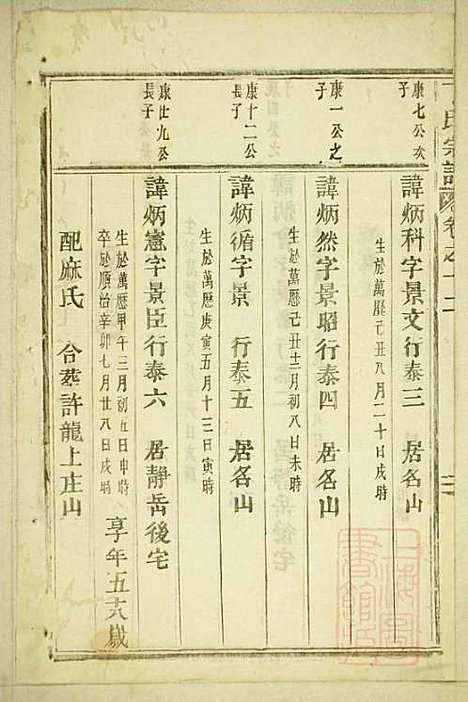 氏宗譜 卷之十二
康七公次子
諱炳科字景文行泰三 居名山
生於萬曆己丑八月二十日戌時
康一公之子
諱炳然字景昭行泰四 居名山
生於萬曆己丑十二月初八日未時
康十二公長子
諱炳循字景 行泰五 居名山
生於萬曆庚寅五月十三日寅時
康廿九公長子
諱炳憲字景臣行泰六 居靜岳後宅
生於萬曆甲午三月初五日申時
卒於順治辛卯七月廿八日戌時 享年五十八歲
配麻氏 合葬許龍上庄山